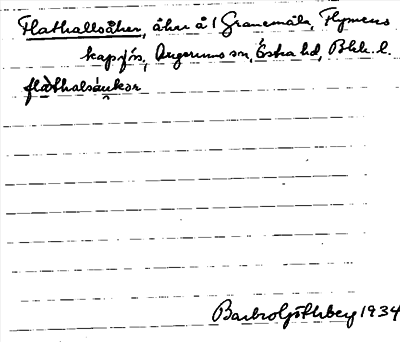 Flathallsåker, åker å 1 Granemåla, Flymens
kapförs., Augerums sn, Östra hd, Blek. l.
flàthalsáukər
Barbro Götherberg 1934